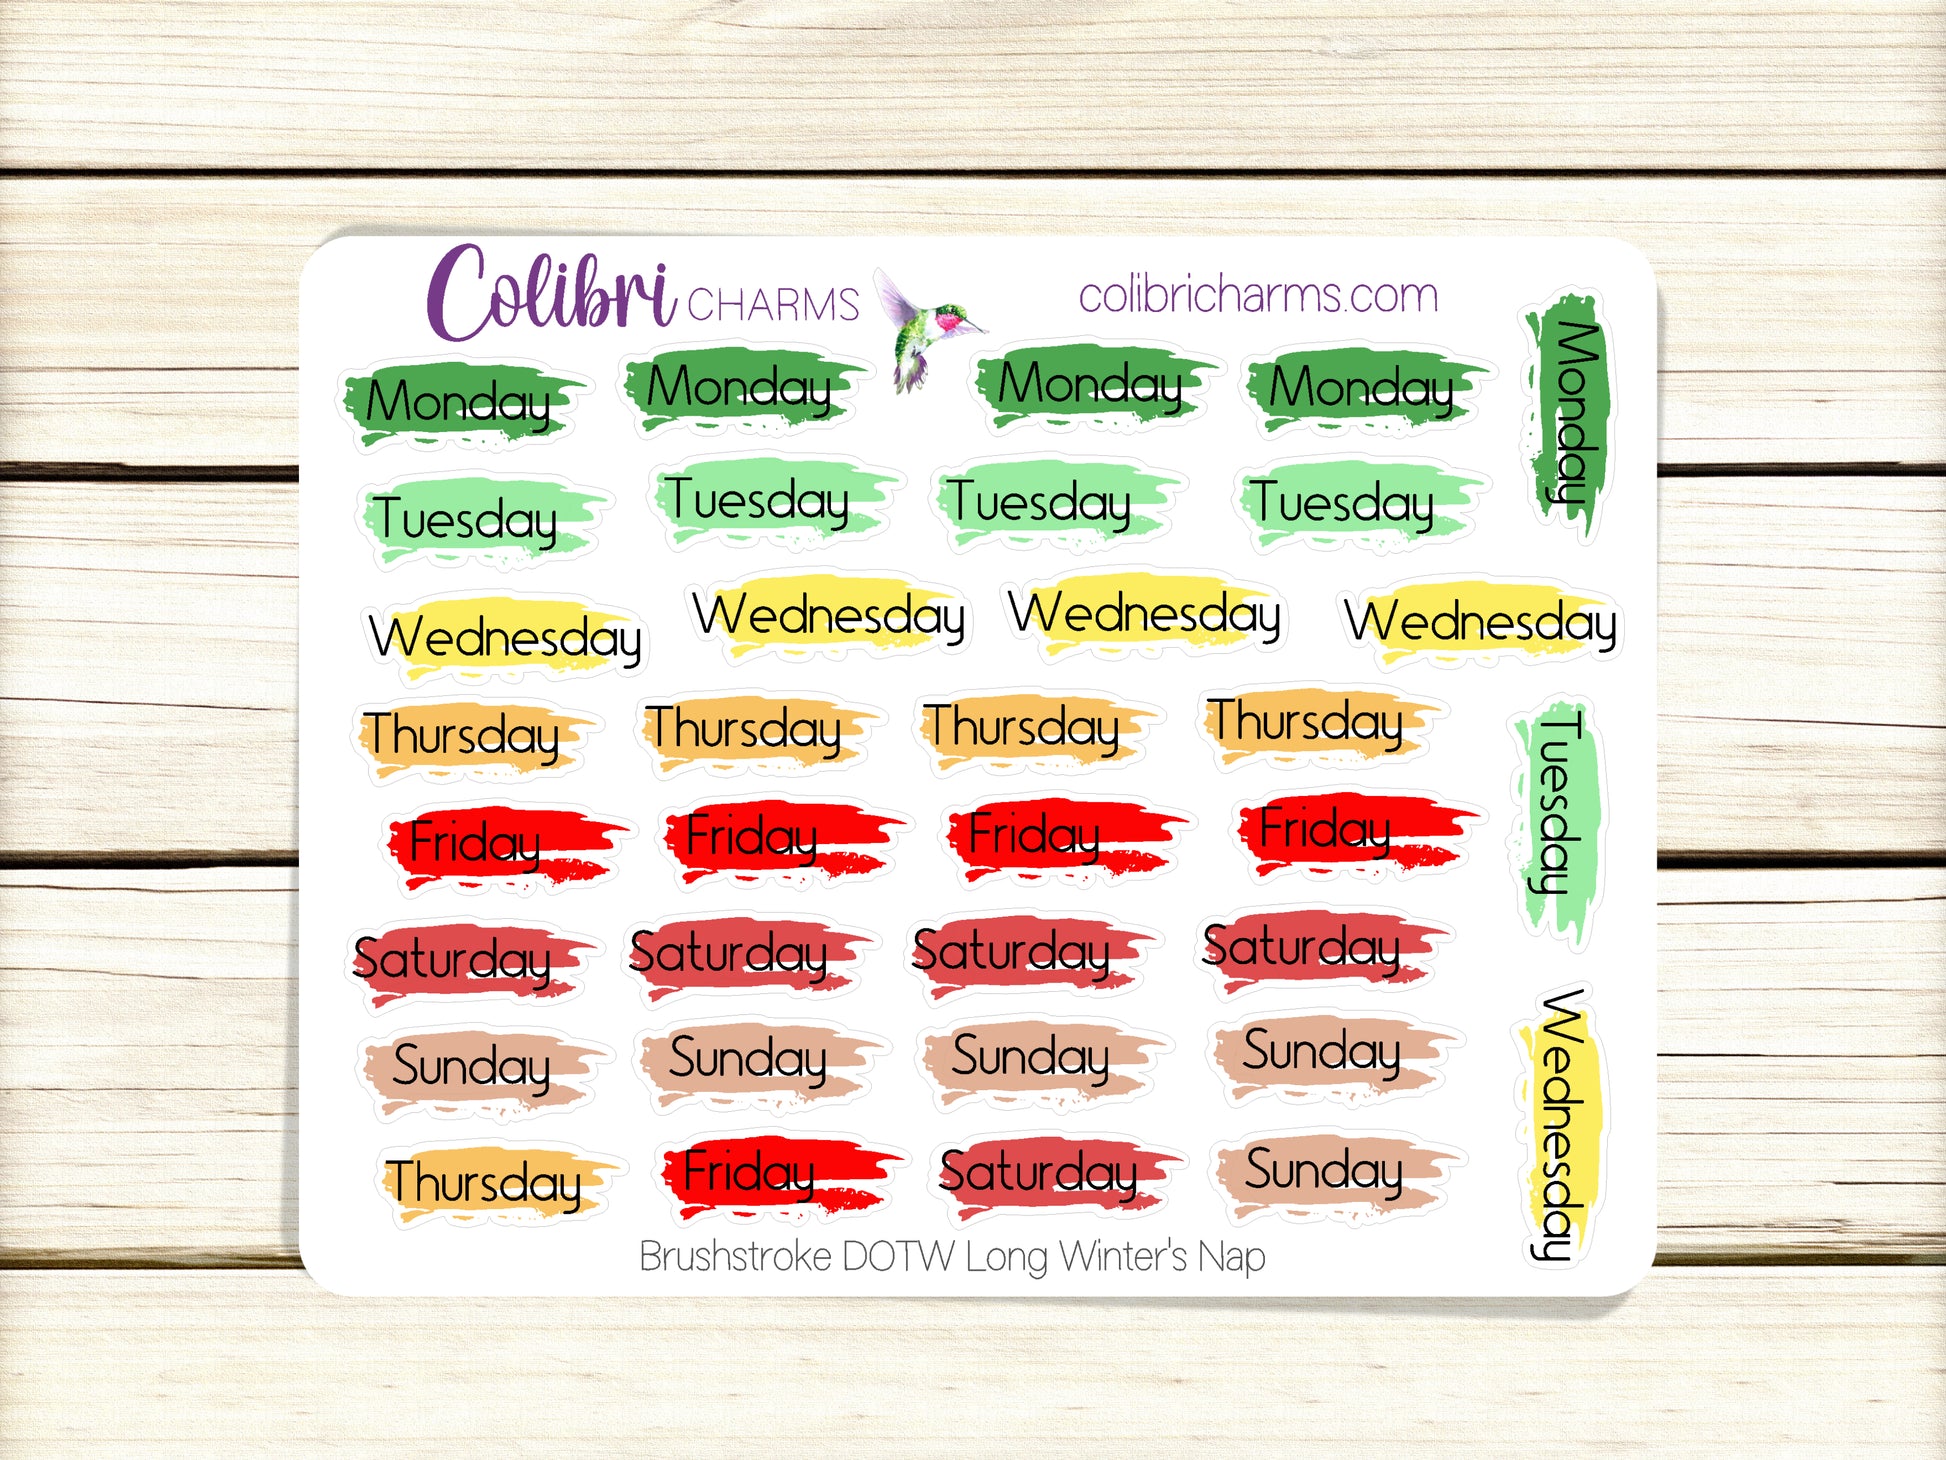 Colibri CHARMS
colibricharms.com
Monday Monday Monday Monday
Tuesday Tuesday Tuesday Tuesday
Wednesday Wednesday Wednesday Wednesday
Thursday Thursday Thursday Thursday
Friday Friday Friday Friday
Saturday Saturday Saturday Saturday
Sunday Sunday Sunday Sunday
Thursday Friday Saturday Sunday
Monday
Tuesday
Wednesday
Brushstroke DOTW Long Winter's Nap